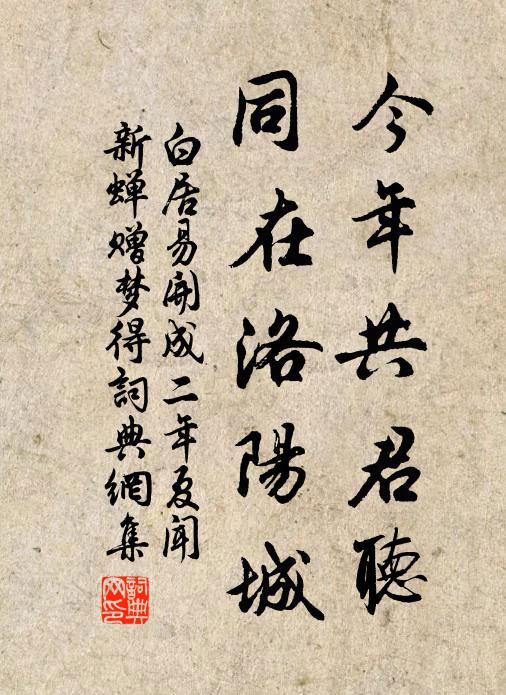 今年共君聽
同在洛陽城
白居易開成二年夏聞
新蟬贈梦得詞典網集
詞典
网印